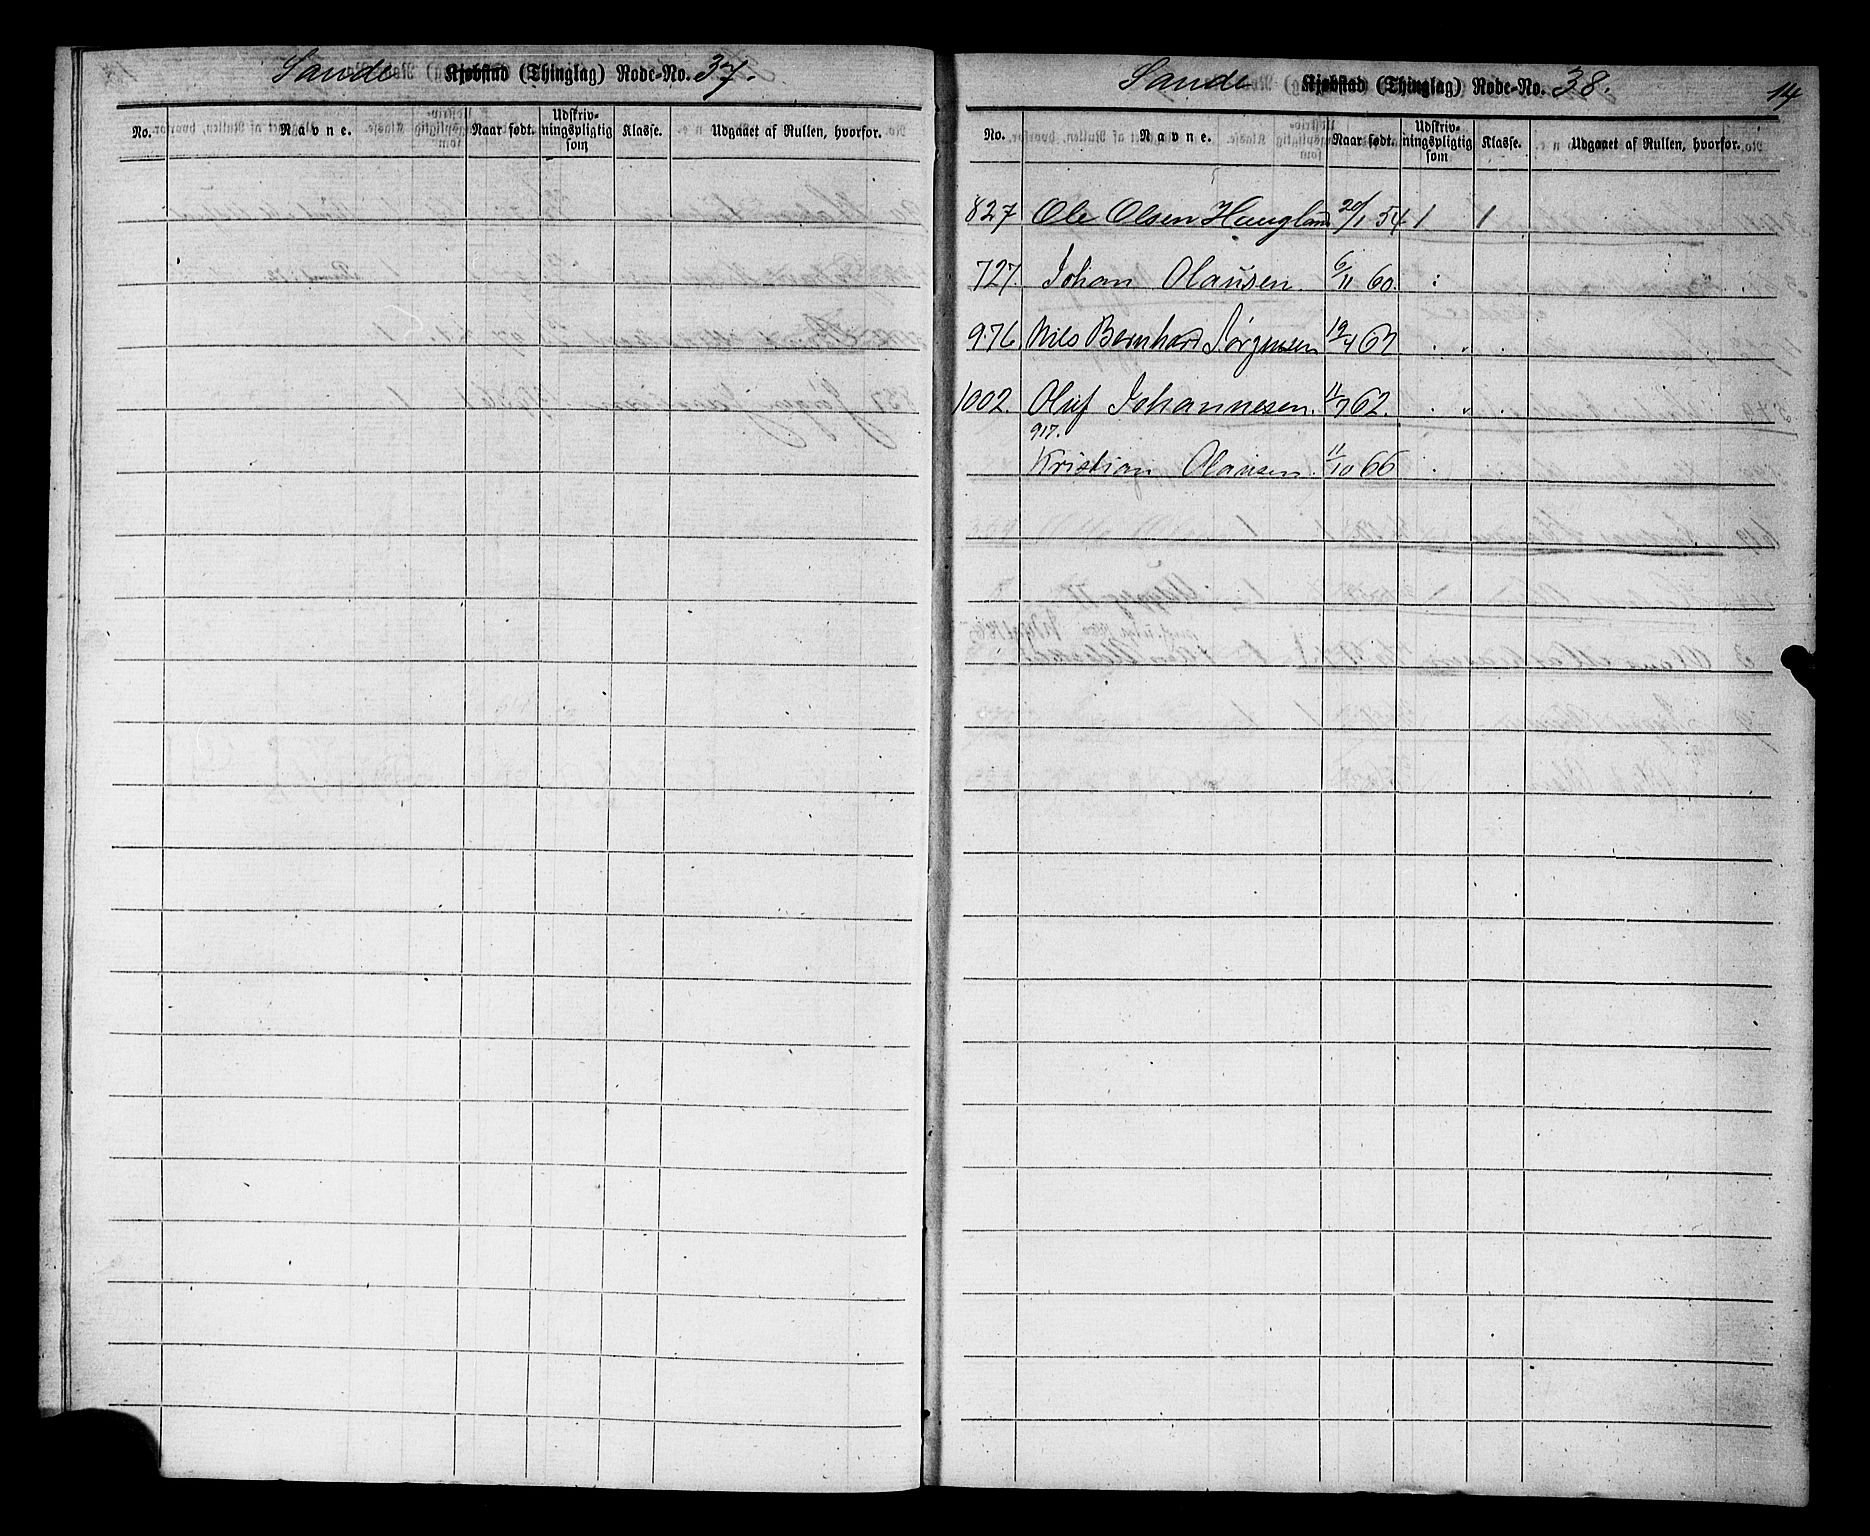 Sande Kjøbstad (Thinglag) Rode-No. 37.
No. Navne. Naar født. Udskriv-ningspligtig som Klasse. Udgaaet af Rullen, hvorfor.
Sande Kjøbstad (Thinglag) Rode-No. 38. 14
No. Navne. Naar født. Udskriv-ningspligtig som Klasse. Udgaaet af Rullen, hvorfor.
827 Ole Olsen Haugland 20/1 54 1 1
727. Johan Olausen. 6/11 60. :
976 Nils Bernhard Jørgensen 19/4 62 . „ .
1002. Oluf Johannesen. 11/7 62. . „ .
917.
Kristian Olausen. 11/10 66 .